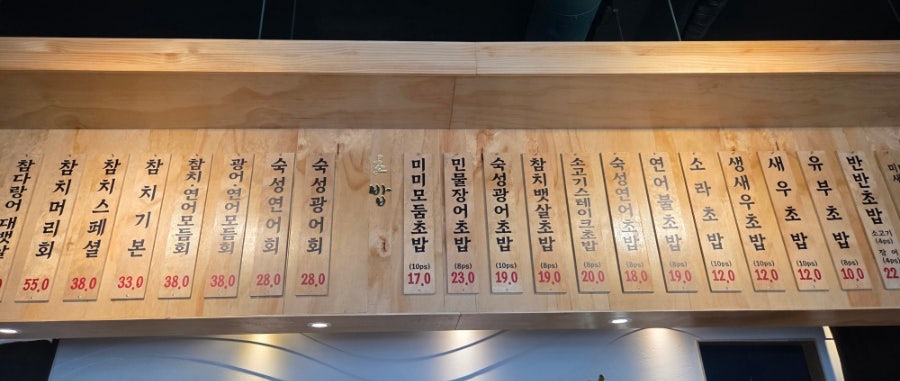 참다랑어 대뱃살
참치머리회
55.0
참치스페셜
38.0
참치기본
33.0
참치·연어모듬회
38.0
광어·연어모듬회
38.0
숙성연어회
28.0
숙성광어회
28.0
초밥
미미모둠초밥
(10ps)
17.0
민물장어초밥
(8ps)
23.0
숙성광어초밥
(10ps)
19.0
참치뱃살초밥
(8ps)
19.0
소고기스테이크초밥
(8ps)
20.0
숙성연어초밥
(8ps)
18.0
연어불초밥
(8ps)
19.0
소라초밥
(10ps)
12.0
생새우초밥
(10ps)
12.0
새우초밥
(10ps)
12.0
유부초밥
(8ps)
10.0
반반초밥
소고기
(4ps)
장어
(4ps)
22